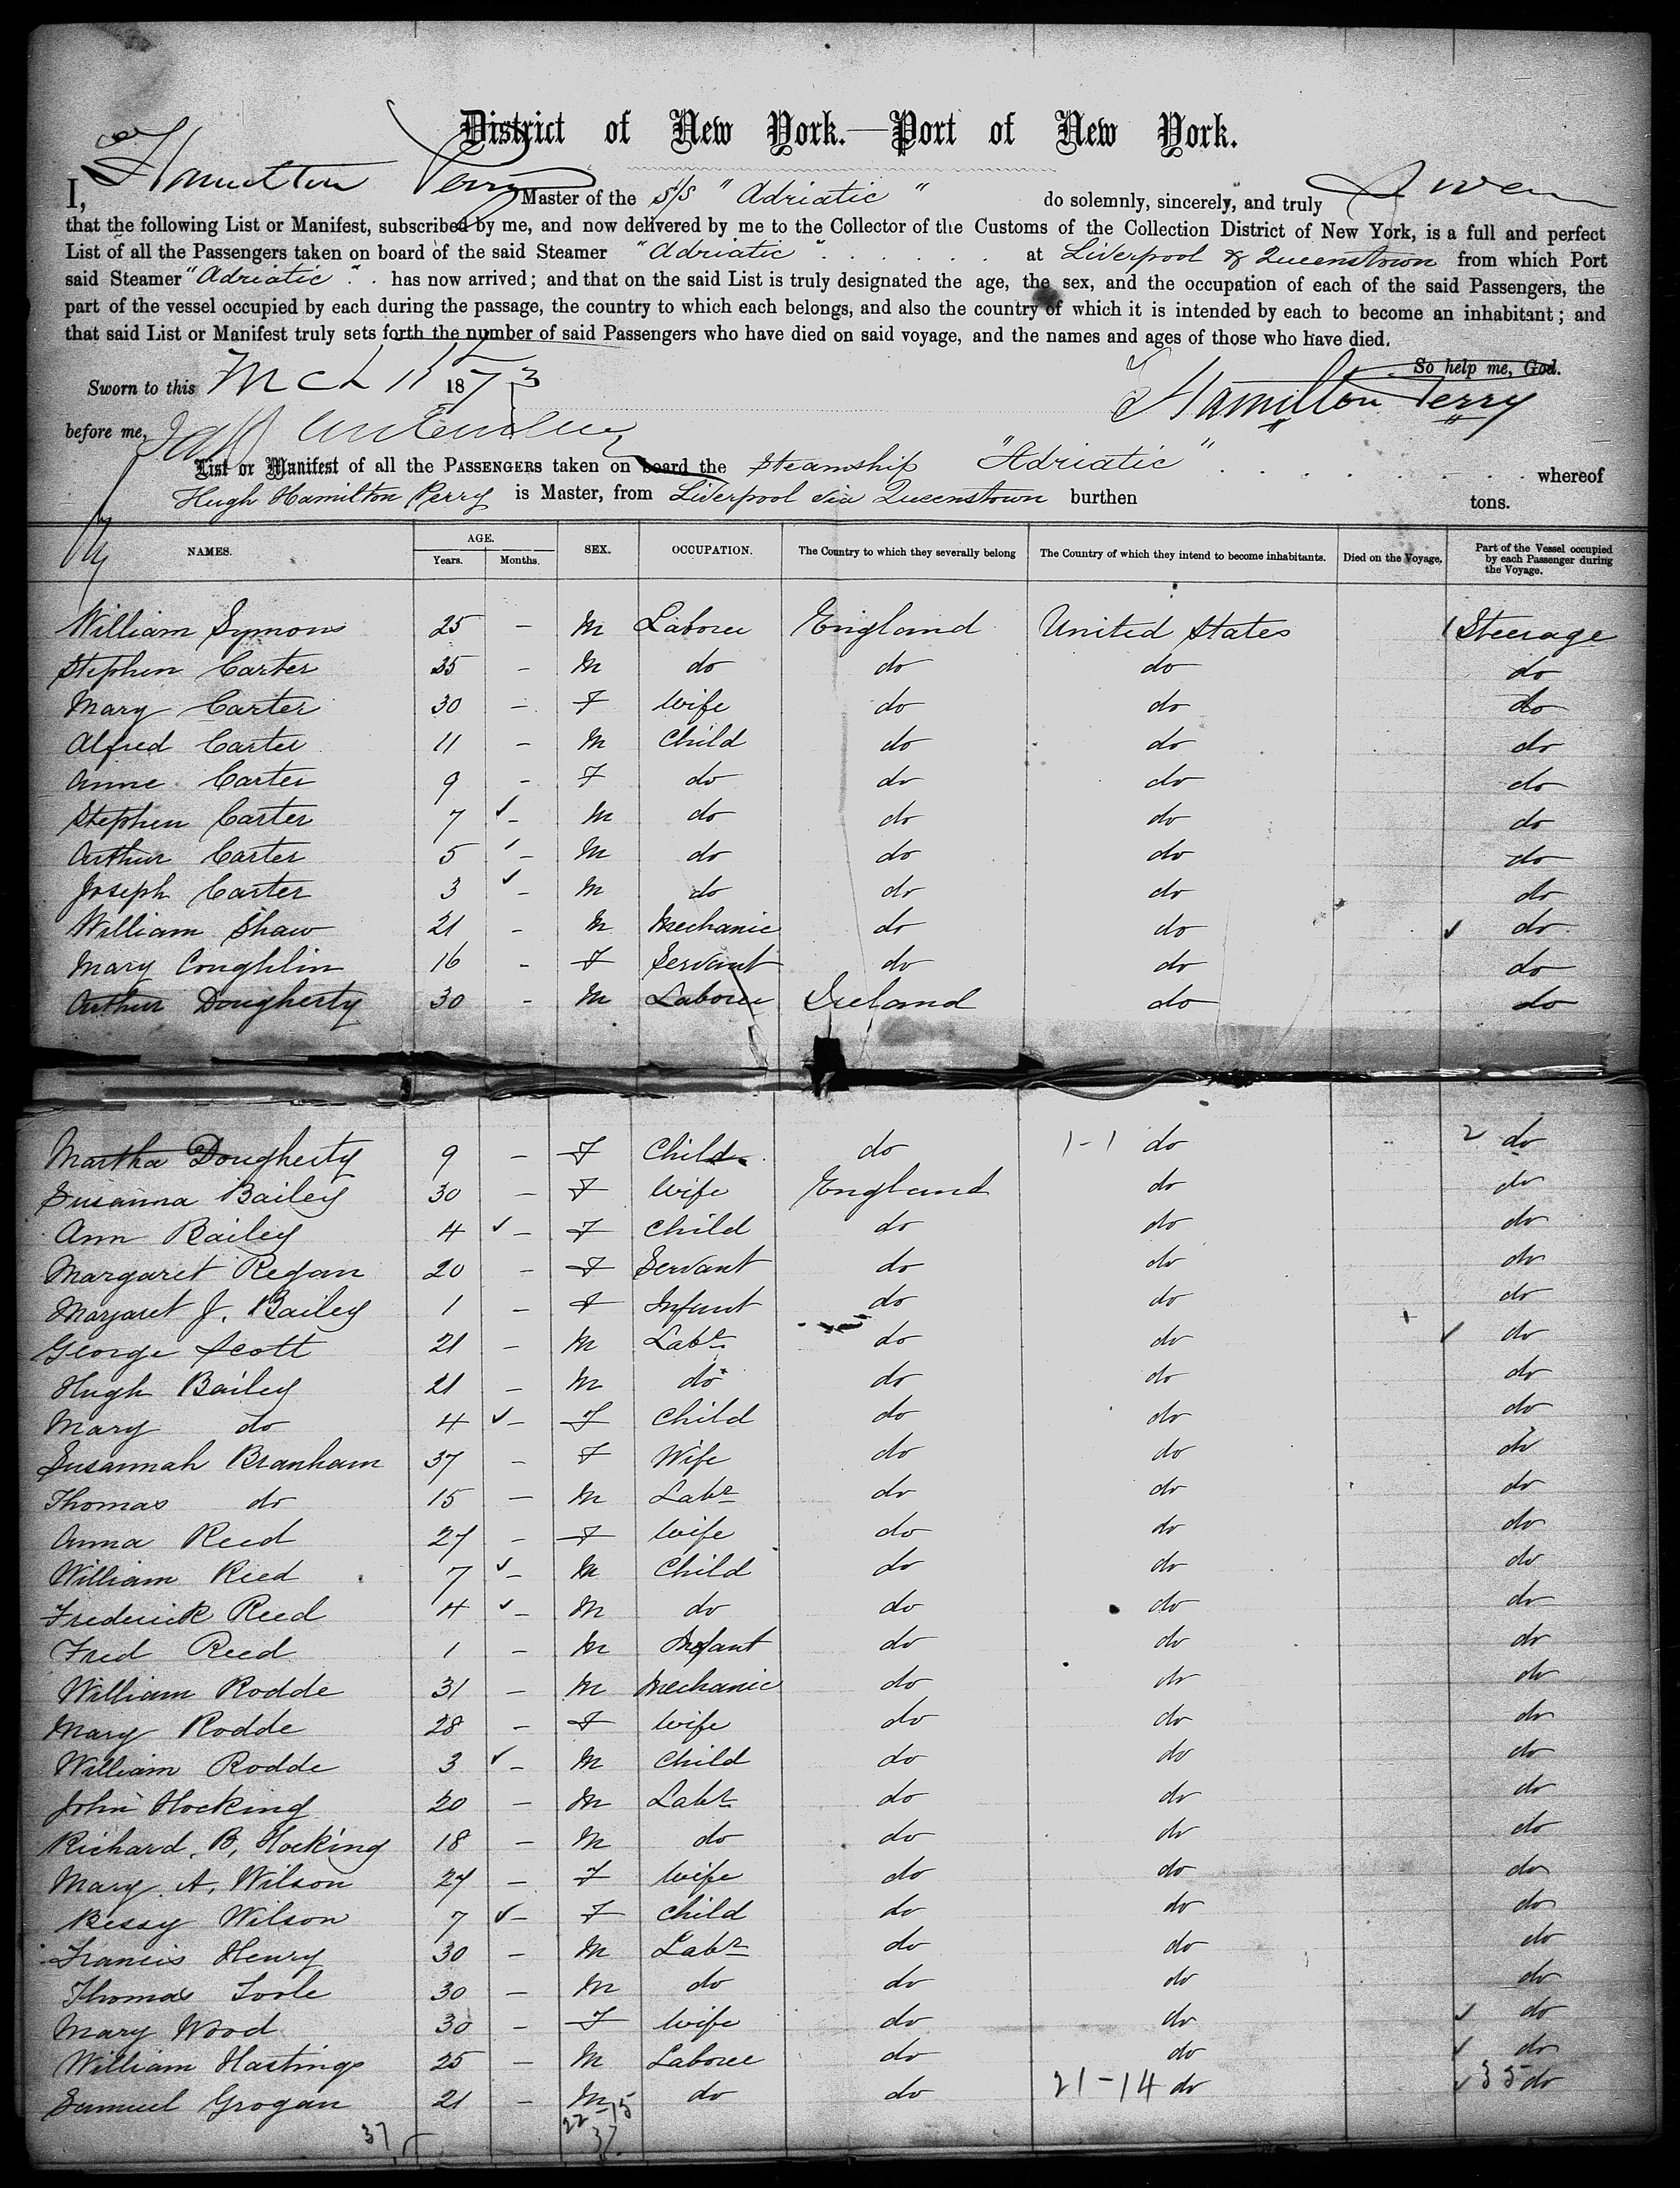 District of New York.—Port of New York.
I, H Hamilton Perry Master of the S/S "Adriatic" do solemnly, sincerely, and truly Swear
that the following List or Manifest, subscribed by me, and now delivered by me to the Collector of the Customs of the Collection District of New York, is a full and perfect
List of all the Passengers taken on board of the said Steamer "Adriatic" at Liverpool & Queenstown from which Port
said Steamer "Adriatic" has now arrived; and that on the said List is truly designated the age, the sex, and the occupation of each of the said Passengers, the
part of the vessel occupied by each during the passage, the country to which each belongs, and also the country of which it is intended by each to become an inhabitant; and
that said List or Manifest truly sets forth the number of said Passengers who have died on said voyage, and the names and ages of those who have died.
So help me, God.
Sworn to this Mch 1873 H Hamilton Perry
before me,
List or Manifest of all the PASSENGERS taken on board the Steamship "Adriatic" whereof
Hugh Hamilton Perry is Master, from Liverpool via Queenstown burthen tons.
NAMES. AGE. Years. Months. SEX. OCCUPATION. The Country to which they severally belong The Country of which they intend to become inhabitants. Died on the Voyage. Part of the Vessel occupied by each Passenger during the Voyage.
William Symons 25 - M Laborer England United States 1 Steerage
Stephen Carter 35 - M do do do do
Mary Carter 30 - F Wife do do do
Alfred Carter 11 - M Child do do do
Anne Carter 9 - F do do do do
Stephen Carter 7 ✓ - M do do do do
Arthur Carter 5 ✓ - M do do do do
Joseph Carter 3 ✓ - M do do do do
William Shaw 21 - M Mechanic do do ✓ do
Mary Coughlin 16 - F Servant do do do
Arthur Dougherty 30 - M Laborer Ireland do do
Martha Dougherty 9 - F Child do 1-1 do 2 do
Susanna Bailey 30 - F Wife England do do
Ann Bailey 4 ✓ - F Child do do do
Margaret Regan 20 - F Servant do do do
Margaret J. Bailey 1 - F Infant do do do
George Scott 21 - M Labr do do ✓ do
Hugh Bailey 21 - M do do do do
Mary do 4 ✓ - F Child do do do
Susannah Branham 37 - F Wife do do do
Thomas do 15 - M Labr do do do
Anna Reed 27 - F Wife do do do
William Reed 7 ✓ - M Child do do do
Frederick Reed 4 ✓ - M do do do do
Fred Reed 1 - M Infant do do do
William Rodde 31 - M Mechanic do do do
Mary Rodde 28 - F Wife do do do
William Rodde 3 ✓ - M Child do do do
John Hocking 20 - M Labr do do do
Richard B. Hocking 18 - M do do do do
Mary A. Wilson 27 - F Wife do do do
Bessy Wilson 7 ✓ - F Child do do do
Francis Henry 30 - M Labr do do do
Thomas Toole 30 - M do do do do
Mary Wood 30 - F Wife do do ✓ do
William Hastings 25 - M Laborer do do ✓ do
Samuel Grogan 21 - M do do 21-14 do ✓ 35 do
37 22 15
37